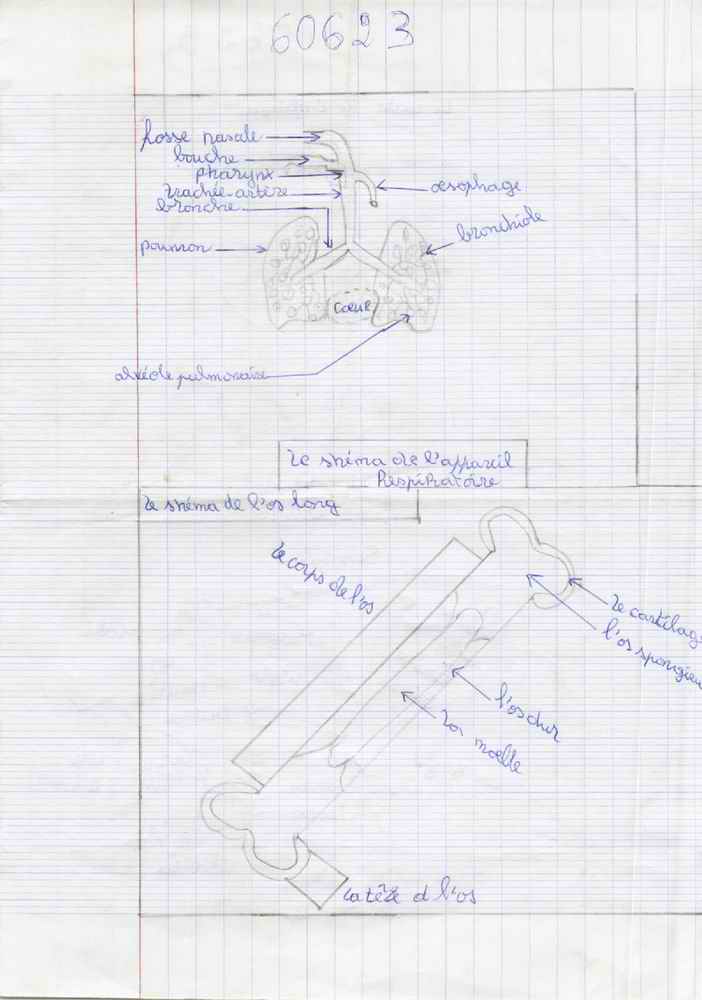 60623
fosse nasale
bouche
pharynx
trachée-artère
bronche
œsophage
bronchiole
poumon
cœur
alvéole pulmonaire
Le shéma de l'appareil
Respiratoire
Le shéma de l'os long
Le corps de l'os
Le cartilag
l'os spongieu
l'os dur
La moelle
La tête d l'os